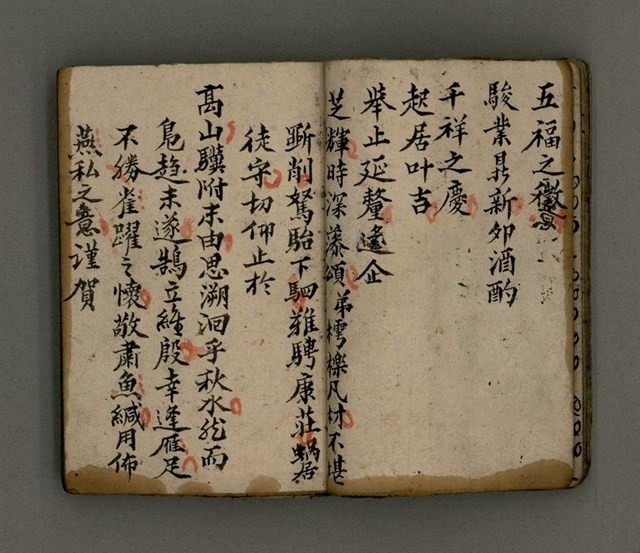 五福之徵
駿業鼎新卯酒酌
千祥之慶
起居叶吉
举止延釐遙企
芝輝時深藻頌弟樗櫟凡材不堪
斵削駑駘下駟難聘康莊蝸居
徒守切仰止於
高山驥附末由思溯洄乎秋水然而
鳧趨未遂鵠立維殷幸逢雁足
不勝雀躍之懷敬肅魚緘用佈
燕私之意谨賀